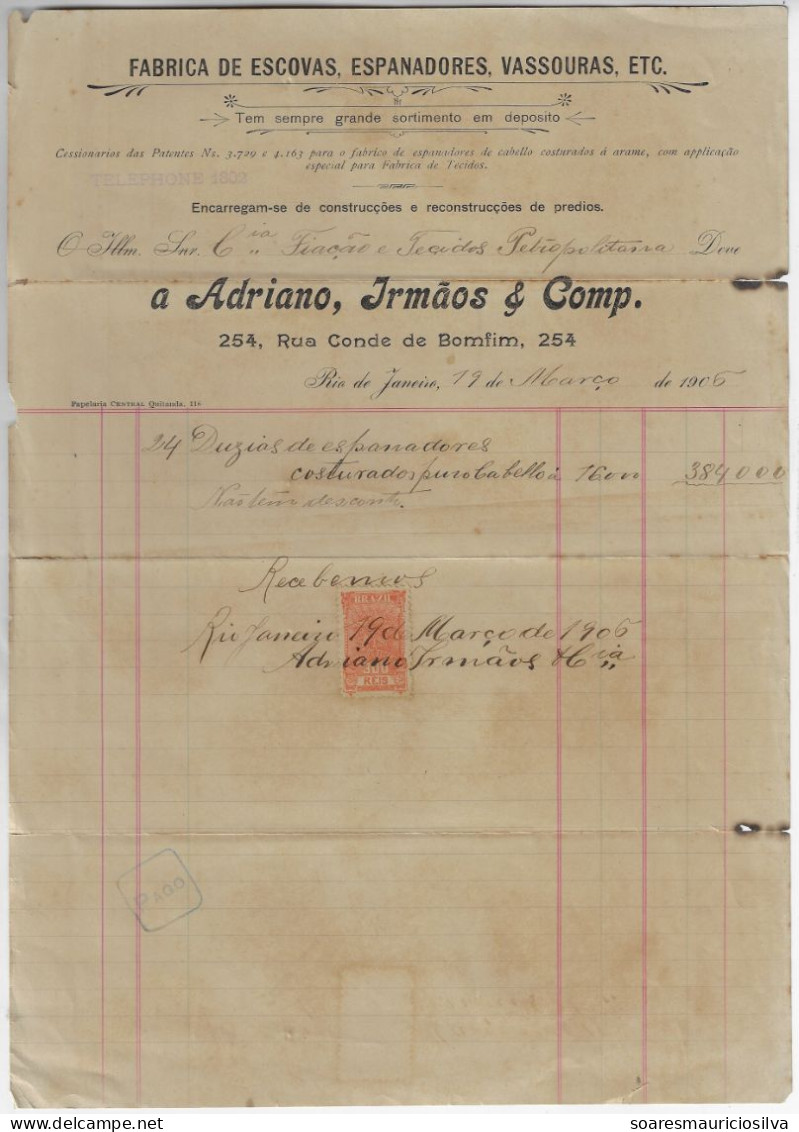 FABRICA DE ESCOVAS, ESPANADORES, VASSOURAS, ETC.
Tem sempre grande sortimento em deposito
Cessionarios das Patentes Ns. 3.729 e 4.163 para o fabrico de espanadores de cabello costurados á arame, com applicação
especial para Fabrica de Tecidos.
TELEPHONE 1302
Encarregam-se de construcções e reconstrucções de predios.
O Illm. Snr. Cia Fiação e Tecidos Petropolitana Deve
a Adriano, Irmãos & Comp.
254, Rua Conde de Bomfim, 254
Rio de Janeiro, 19 de Março de 1906
Papelaria CENTRAL Quitanda, 118
24 Duzias de espanadores
costurados puro Cabello a 16000 384000
Não tem desconto.
Recebemos
BRAZIL
Rio Janeiro 19 de Março de 1906
Adriano Irmãos & Cia
300
REIS
PAGO
soaresmauriciosilva